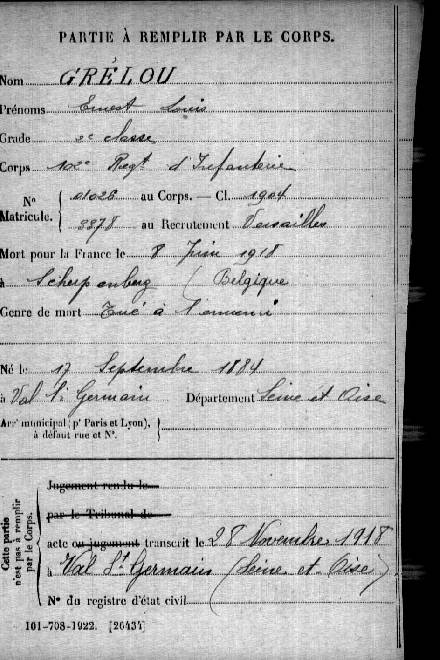 PARTIE À REMPLIR PAR LE CORPS.
Nom GRÉLOU
Prénoms Ernest Louis
Grade 2e classe
Corps 102e Regt d'Infanterie
No Matricule. { 01028 au Corps. — Cl. 1904
3378 au Recrutement Versailles
Mort pour la France le 8 Juin 1918
à Scherpenberg (Belgique
Genre de mort Tué à l'ennemi
Né le 17 Septembre 1884
à Val St Germain Département Seine et Oise
Arrt municipal (pr Paris et Lyon),
à défaut rue et No.
Cette partie n'est pas à remplir par le Corps.
Jugement rendu le
par le Tribunal de
acte ou jugement transcrit le 28 Novembre 1918
à Val St Germain (Seine et Oise)
No du registre d'état civil
101-708-1922. [26434]